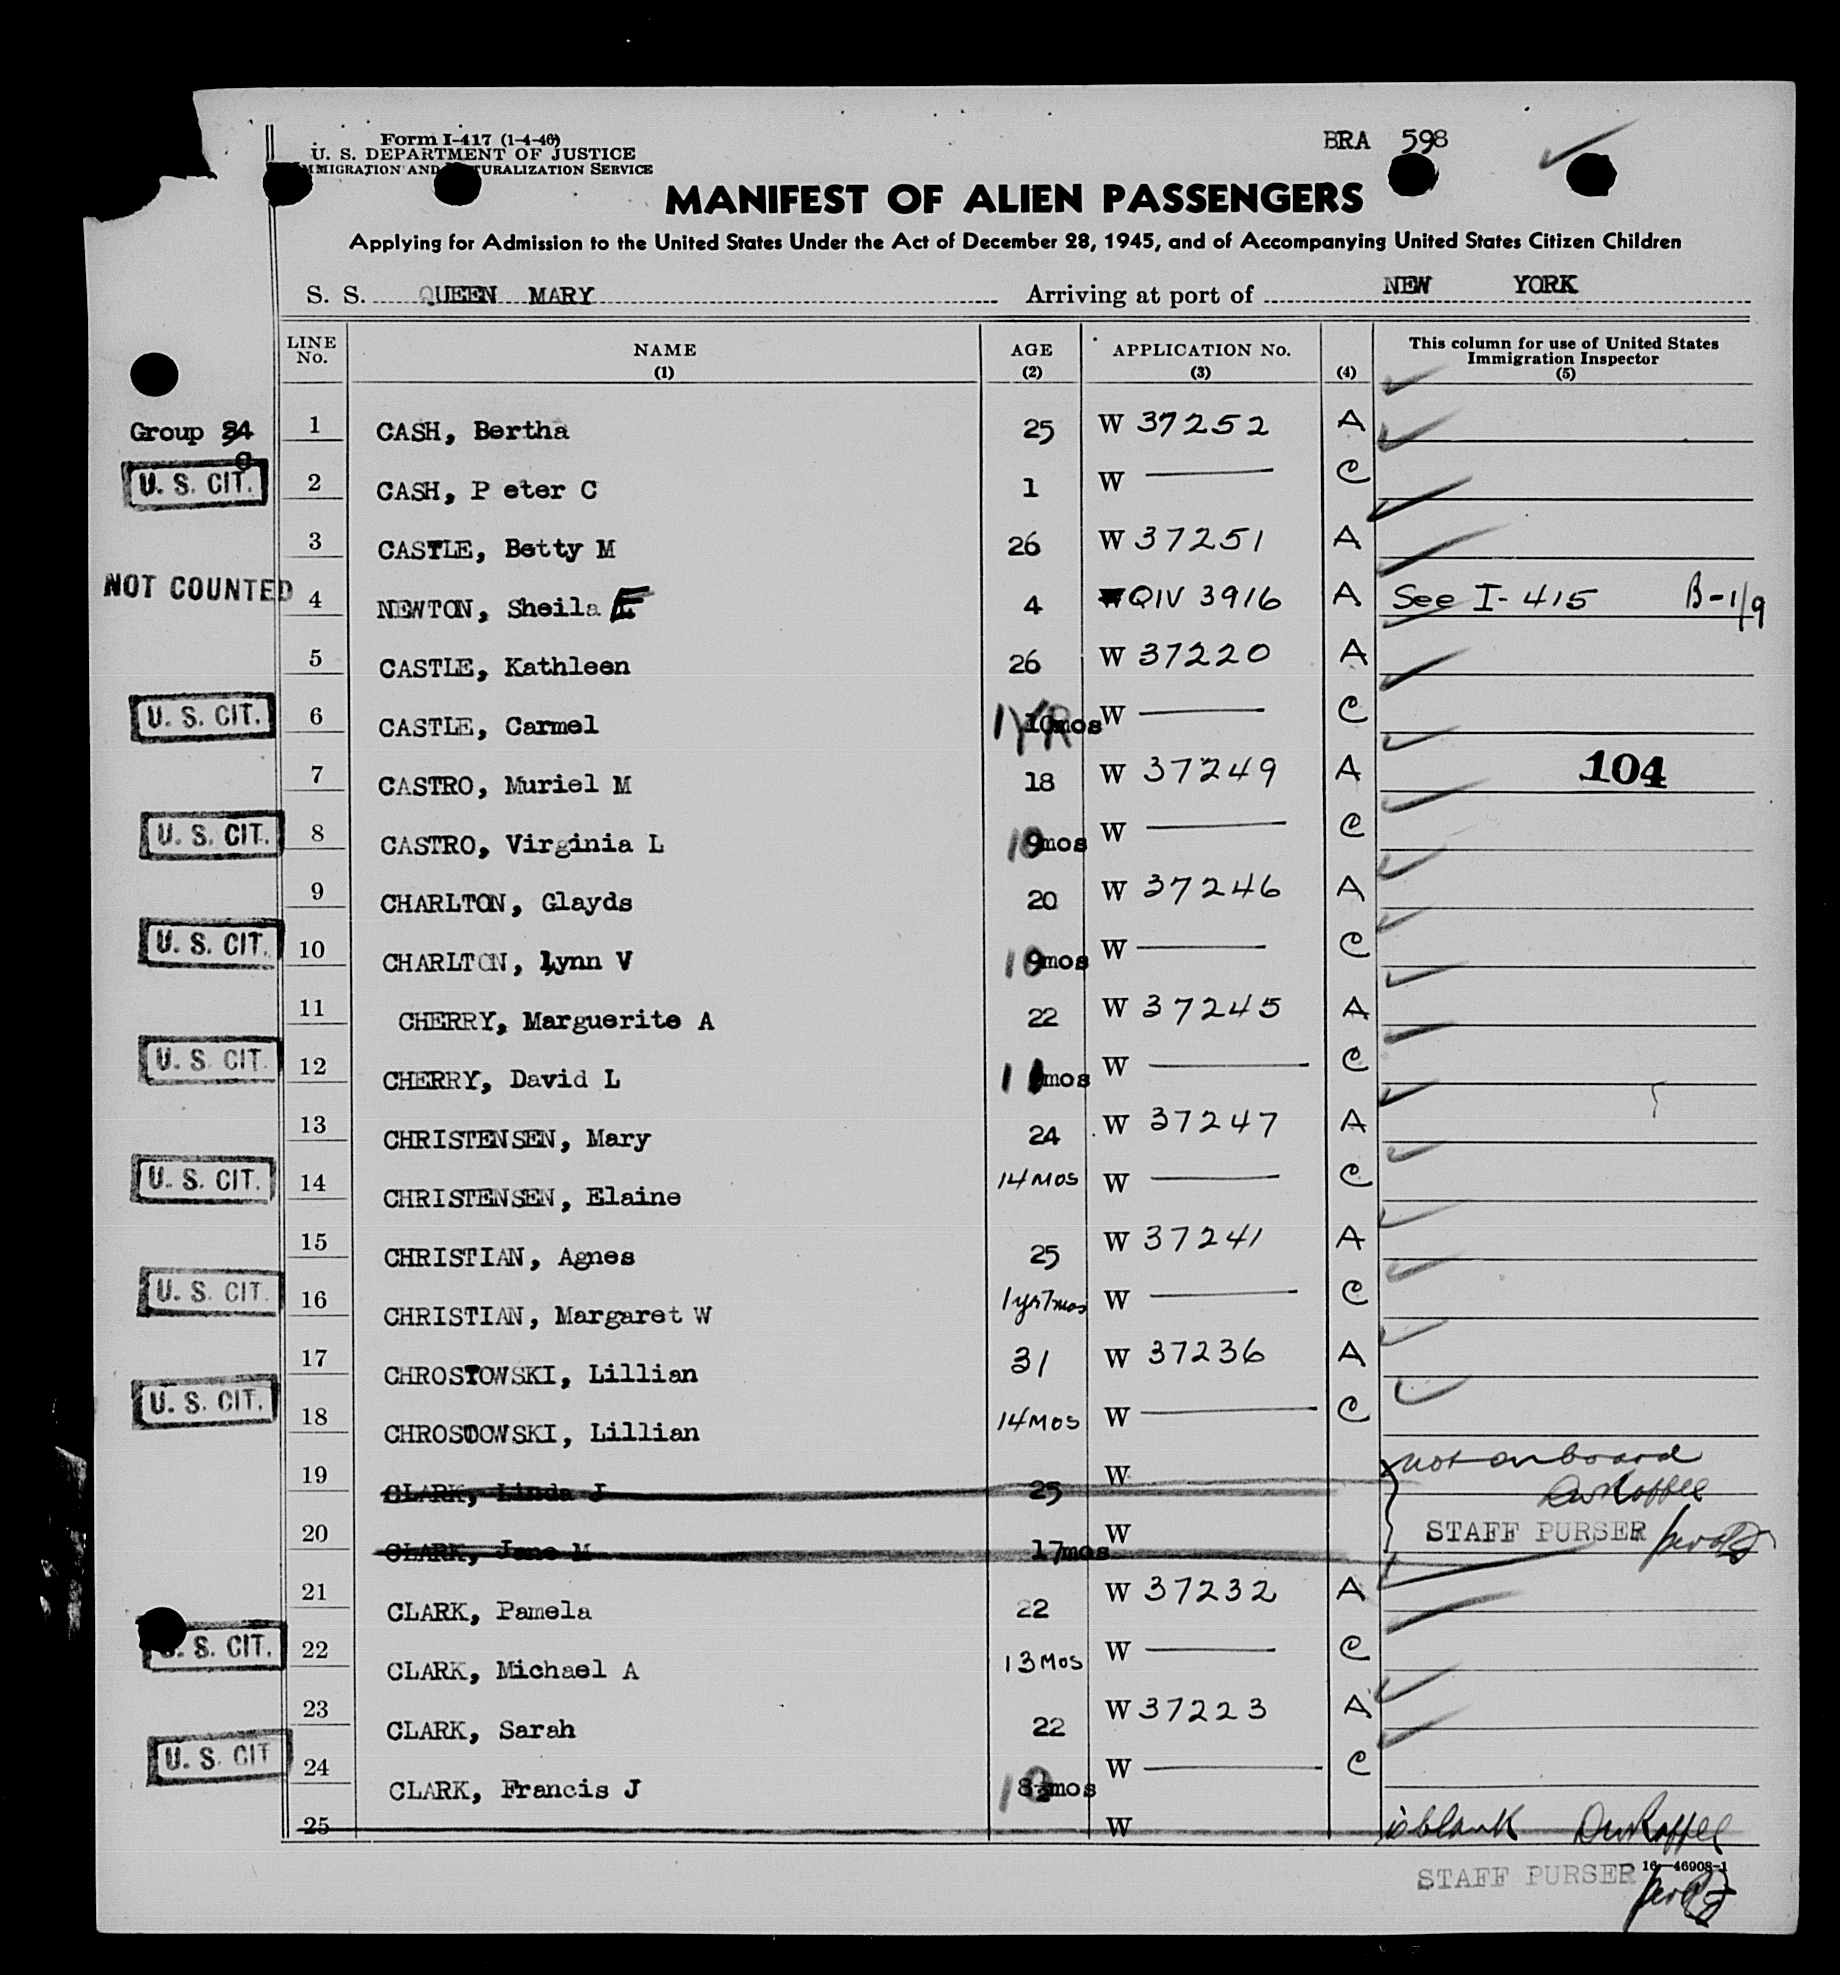 Form I-417 (1-4-46)
U. S. DEPARTMENT OF JUSTICE
IMMIGRATION AND NATURALIZATION SERVICE
BRA 598
MANIFEST OF ALIEN PASSENGERS
Applying for Admission to the United States Under the Act of December 28, 1945, and of Accompanying United States Citizen Children
S. S. QUEEN MARY Arriving at port of NEW YORK
LINE No. NAME (1) AGE (2) APPLICATION No. (3) (4) This column for use of United States Immigration Inspector (5)
Group 34 1 CASH, Bertha 25 W 37252 A
U. S. CIT. 2 CASH, P eter C 1 W — C
3 CASTLE, Betty M 26 W 37251 A
NOT COUNTED 4 NEWTON, Sheila E 4 W QIV 3916 A See I-415 B-1/9
5 CASTLE, Kathleen 26 W 37220 A
U. S. CIT. 6 CASTLE, Carmel 1 YR 10mos W — C
7 CASTRO, Muriel M 18 W 37249 A 104
U. S. CIT. 8 CASTRO, Virginia L 10mos W — C
9 CHARLTON, Glayds 20 W 37246 A
U. S. CIT. 10 CHARLTON, Lynn V 10mos W — C
11 CHERRY, Marguerite A 22 W 37245 A
U. S. CIT. 12 CHERRY, David L 11mos W — C
13 CHRISTENSEN, Mary 24 W 37247 A
U. S. CIT. 14 CHRISTENSEN, Elaine 14 MOS W — C
15 CHRISTIAN, Agnes 25 W 37241 A
U. S. CIT. 16 CHRISTIAN, Margaret W 1 yr 7 mos W — C
17 CHROSTOWSKI, Lillian 31 W 37236 A
U. S. CIT. 18 CHROSTOWSKI, Lillian 14 MOS W — C
19 CLARK, Linda J 25 W not on board
20 CLARK, Jane M 17mos W STAFF PURSER
21 CLARK, Pamela 22 W 37232 A
U. S. CIT. 22 CLARK, Michael A 13 MOS W — C
23 CLARK, Sarah 22 W 37223 A
U. S. CIT 24 CLARK, Francis J mos W — C
25 W is blank
STAFF PURSER 16—46908-1